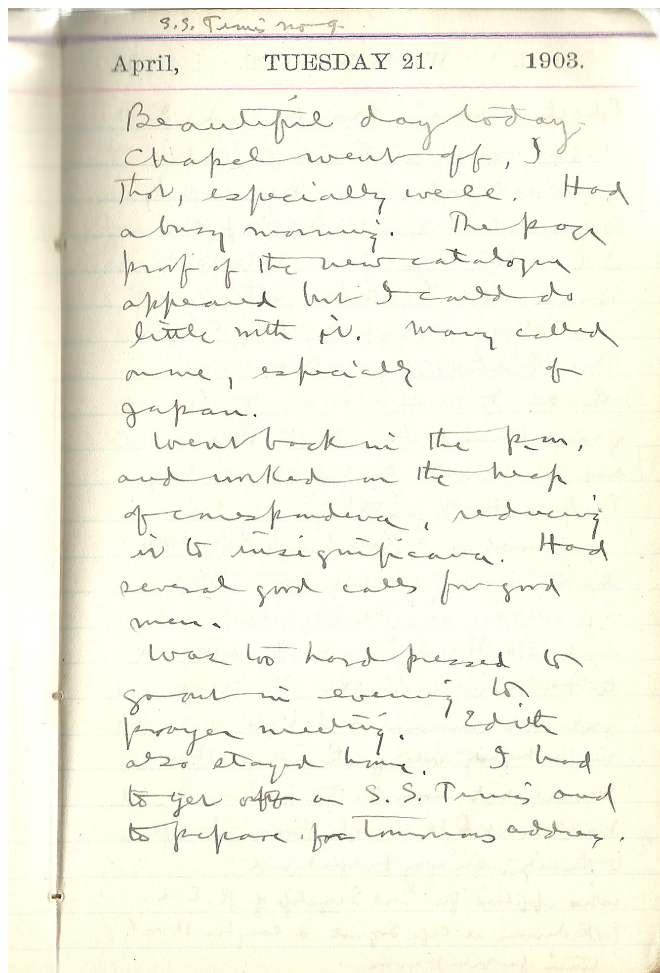 S.S. Times no 9
April, TUESDAY 21. 1903.
Beautiful day today.
Chapel went off, I
thot, especially well. Had
a busy morning. The page
proof of the new catalogue
appeared but I could do
little with it. Many called
on me, especially of
Japan.
Went back in the p.m.
and worked on the heap
of correspondence, reducing
it to insignificance. Had
several good calls for good
men.
Was too hard pressed to
go out in evening to
prayer meeting. Edith
also stayed home. I had
to get off an S.S. Times and
to prepare for tomorrows address.